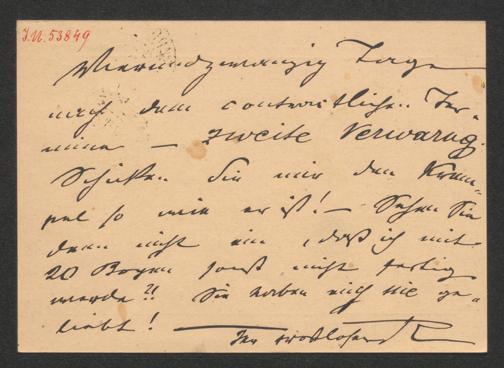 J.N. 53849
Vierundzwanzig Tage
nach dem contractlichen Ter-
mine — zweite Verwarng.
Schicken Sie mir den Krem-
pel so wie er ist! — Sehen Sie
denn nicht ein, daß ich mit
20 Bogen sonst nicht fertig
werde?! Sie haben mich nie ge-
liebt! —
Ihr trostloser